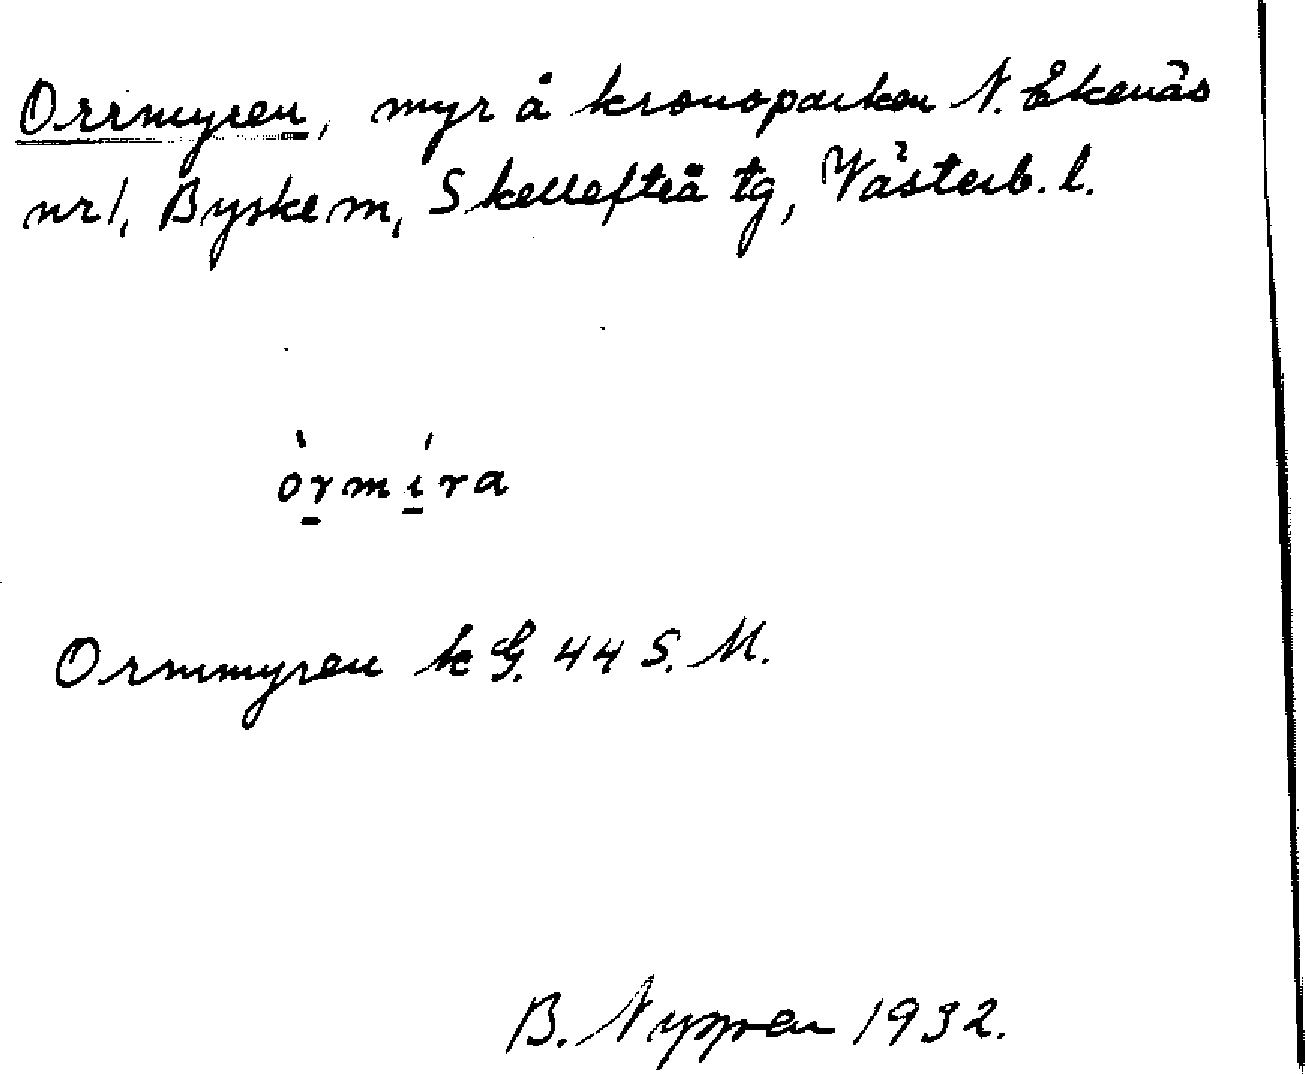 Orrmyren, myr å kronoparken N. Åkenäs
nr 1, Byske sn, Skellefteå tg, Västerb. l.
òrmíra
Orrmyren k G. 44 S. M.
B. Nygren 1932.